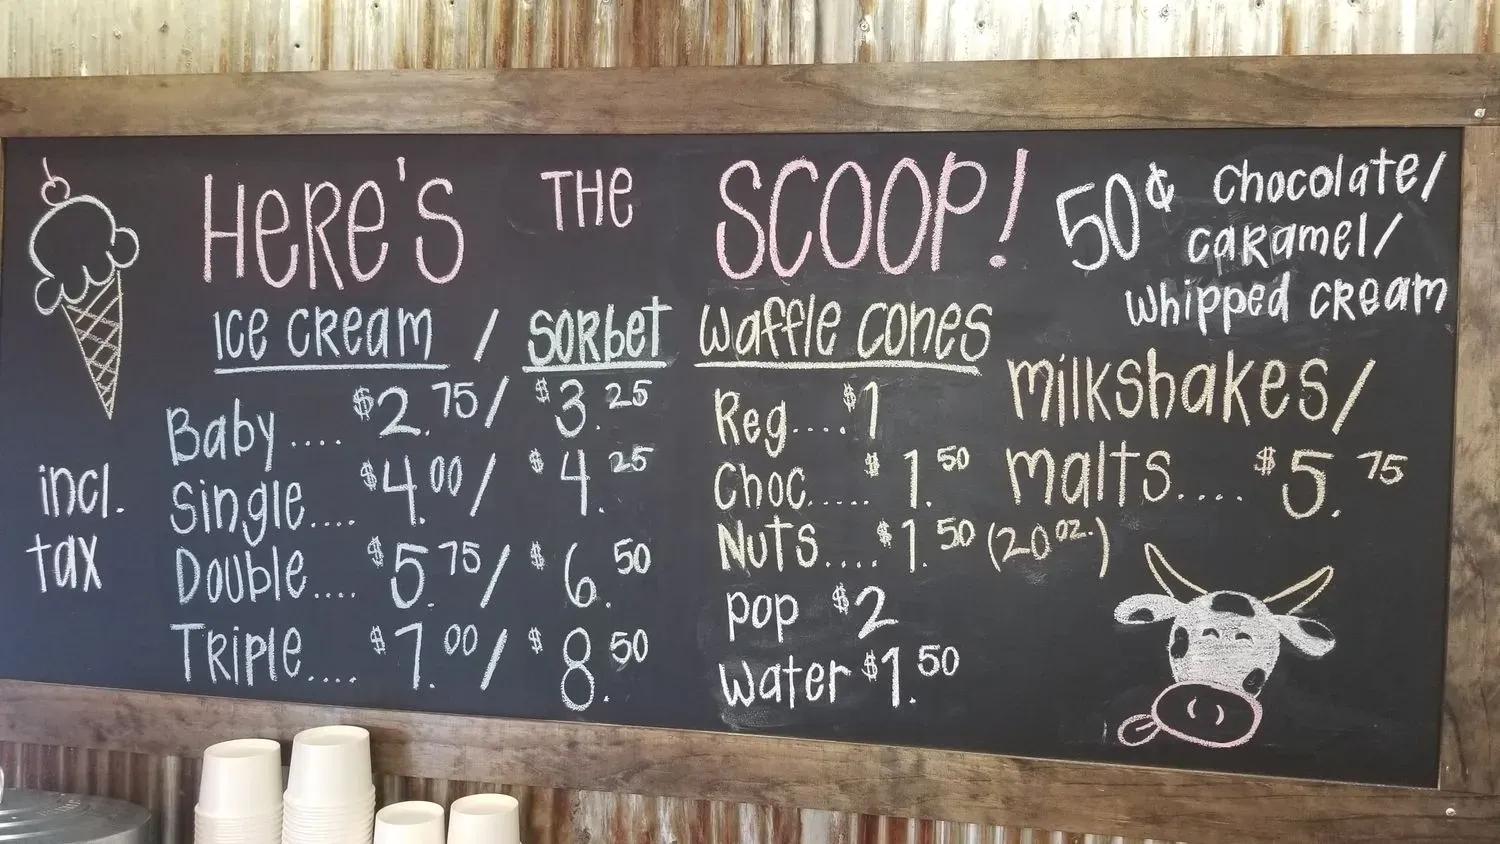 HERE'S THE SCOOP!
ICE CREAM / SORBET
Baby .... $2.75 / $3.25
Single.... $4.00 / $4.25
Double.... $5.75 / $6.50
TRIPLE.... $7.00 / $8.50
incl.
tax
Waffle Cones
Reg.... $1
Choc..... $1.50
Nuts.... $1.50
pop $2
water $1.50
50¢ Chocolate/
caramel/
whipped cream
milkshakes/
malts.... $5.75
(20oz.)